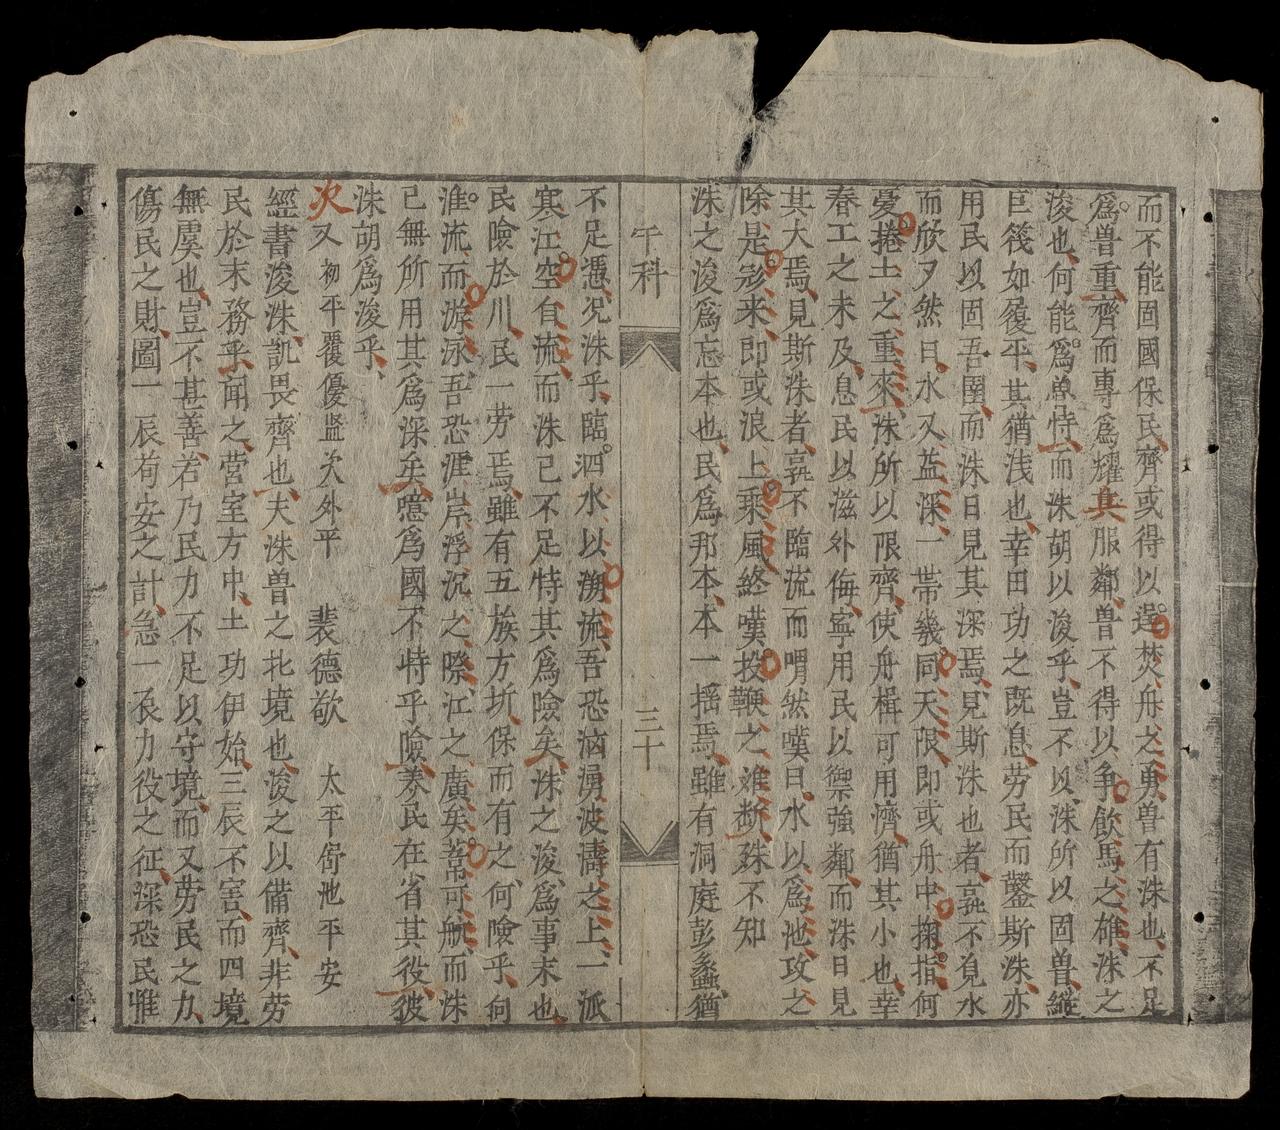 而不能固國保民齊或得以逞焚舟之勇魯有洙也不足
爲魯重齊而專爲耀兵服鄰魯不得以爭飲馬之雄洙之
浚也何能爲魯恃而洙胡以浚乎豈不以洙所以固魯縱
巨筏如履平其猶浅也幸田功之既息劳民而鑿斯洙亦
用民以固吾圉而洙日見其深焉見斯洙也者孰不見水
而欣又然曰水又益深一帯幾同天限即或舟中掬指何
憂捲土之重來洙所以限齊使舟楫可用濟猶其小也幸
春工之未及息民以滋外侮寧用民以禦強鄰而洙日見
其大焉見斯洙者孰不臨流而喟然嘆曰水以爲池攻之
除是彩来即或浪上乘風終嘆投鞭之难断殊不知
洙之浚爲忘本也民爲邦本本一揺焉雖有洞庭彭蠡猶
午科
三十
不足憑况洙乎臨泗水以溯流吾恐洶湧波濤之上一派
寒江空自流而洙已不足恃其爲險矣洙之浚爲事末也
民險於川民一劳焉雖有五族方圻保而有之何險乎何
淮流而游泳吾恐涯岸浮沉之際江之廣矣葦可航而洙
已無所用其爲深矣噫爲國不恃乎險養民在省其役彼
洙胡爲浚乎
次又 初平覆優监次外平 裴德欽 太平府池平安
經書浚洙訊畏齊也夫洙魯之北境也浚之以備齊非劳
民於末務乎聞之营室方中土功伊始三辰不害而四境
無虞也豈不甚善若乃民力不足以守境而又劳民之力
傷民之財圖一辰荀安之計急一辰力役之征深恐民雖